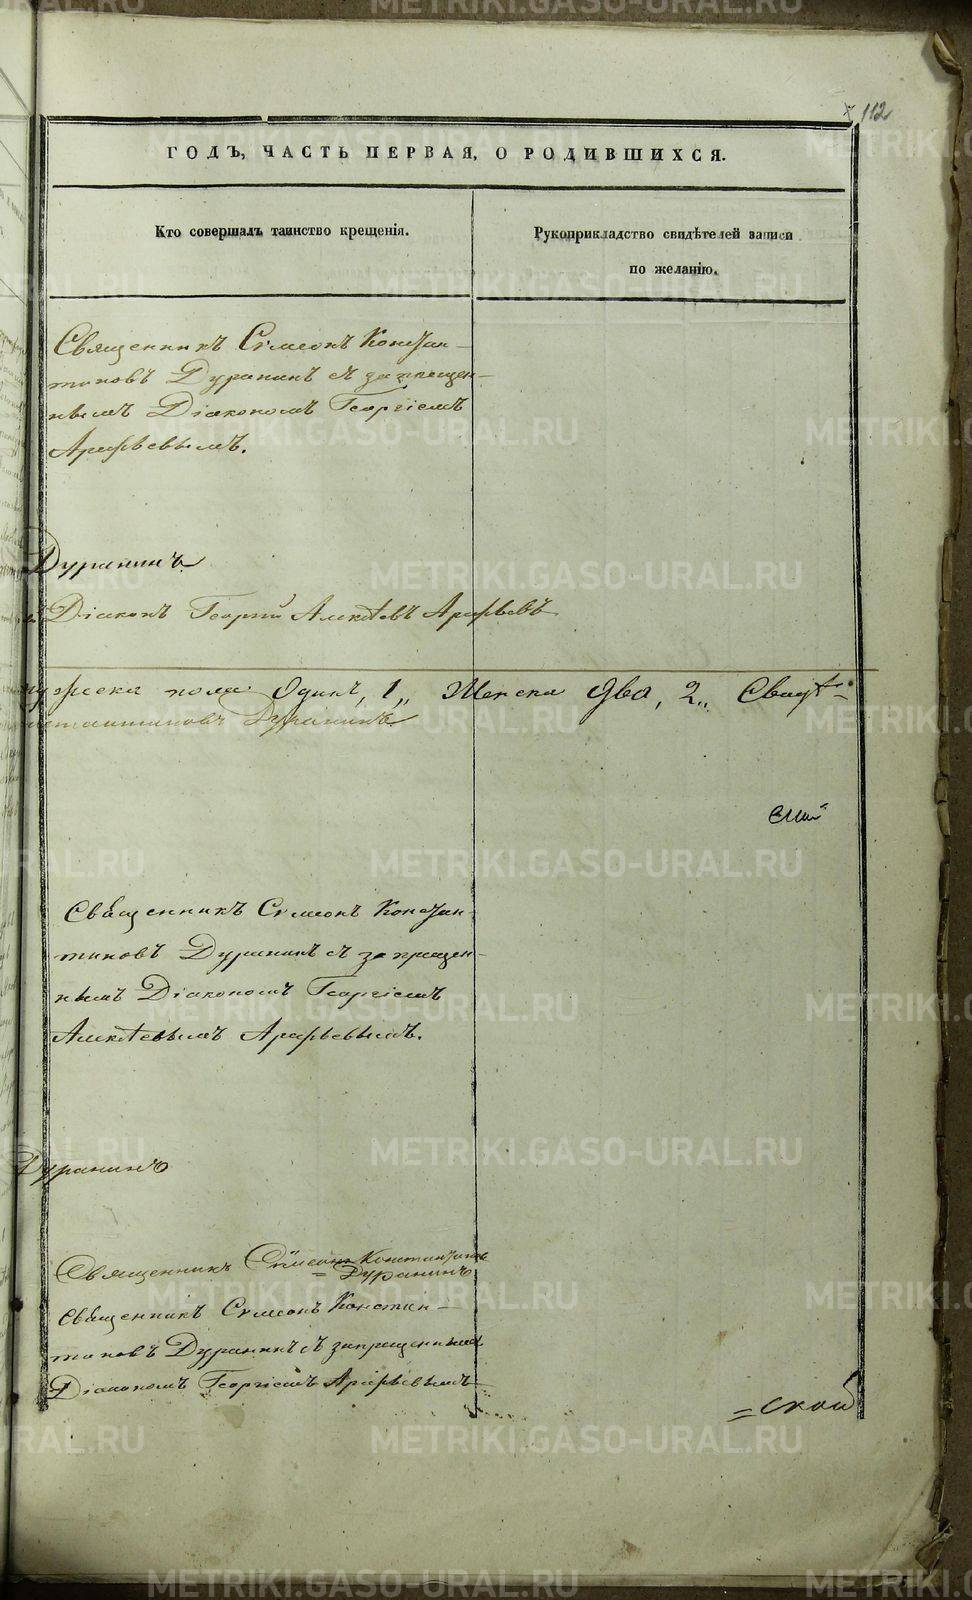 112
ГОДЪ, ЧАСТЬ ПЕРВАЯ, О РОДИВШИХСЯ.
Кто совершалъ таинство крещенія.
Рукоприкладство свидѣтелей записи
по желанію.
Священникъ Симеонъ Констан-
тиновъ Дуранинъ съ запрещен-
нымъ Діакономъ Георгіемъ
Арефьевымъ.
Дуранинъ
Діаконъ Георгій Алексѣевъ Арефьевъ
мужеска пола Одинъ, 1,, Женска Два, 2,,
Константиновъ Дуранинъ
Священникъ Симеонъ Констан-
тиновъ Дуранинъ съ запрещен-
нымъ Діакономъ Георгіемъ
Алексѣевымъ Арефьевымъ.
Дуранинъ
Священникъ Симеонъ Константиновъ
= Дуранинъ
Священникъ Симеонъ Констан-
тиновъ Дуранинъ съ запрещеннымъ
Діакономъ Георгіемъ Арефьевымъ
=ской
METRIKI.GASO-URAL.RU